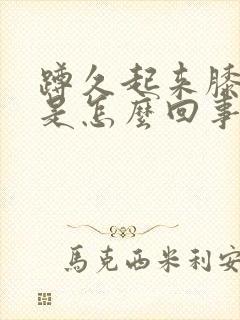 蹲久起来膝
是怎麼回事
馬克西米利安